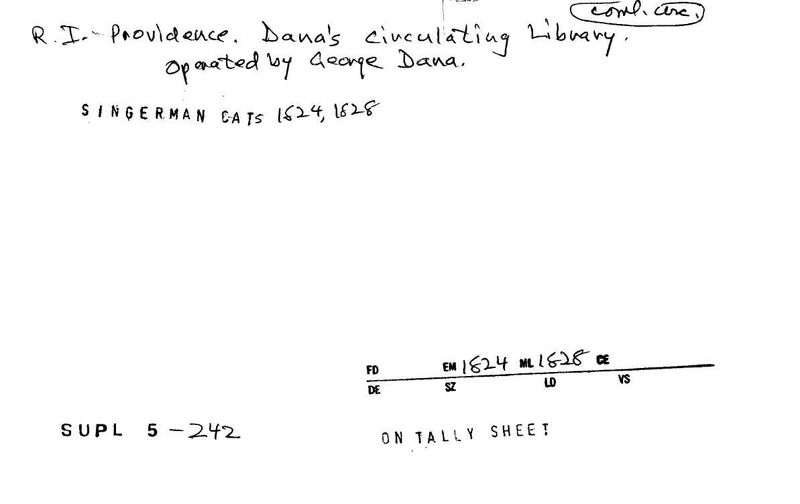 coml. circ.
R.I.- Providence. Dana's circulating Library.
Operated by George Dana.
SINGERMAN CATS 1824, 1828
FD EM 1824 ML 1828 CE
DE SZ LD VS
SUPL 5 - 242 ON TALLY SHEET